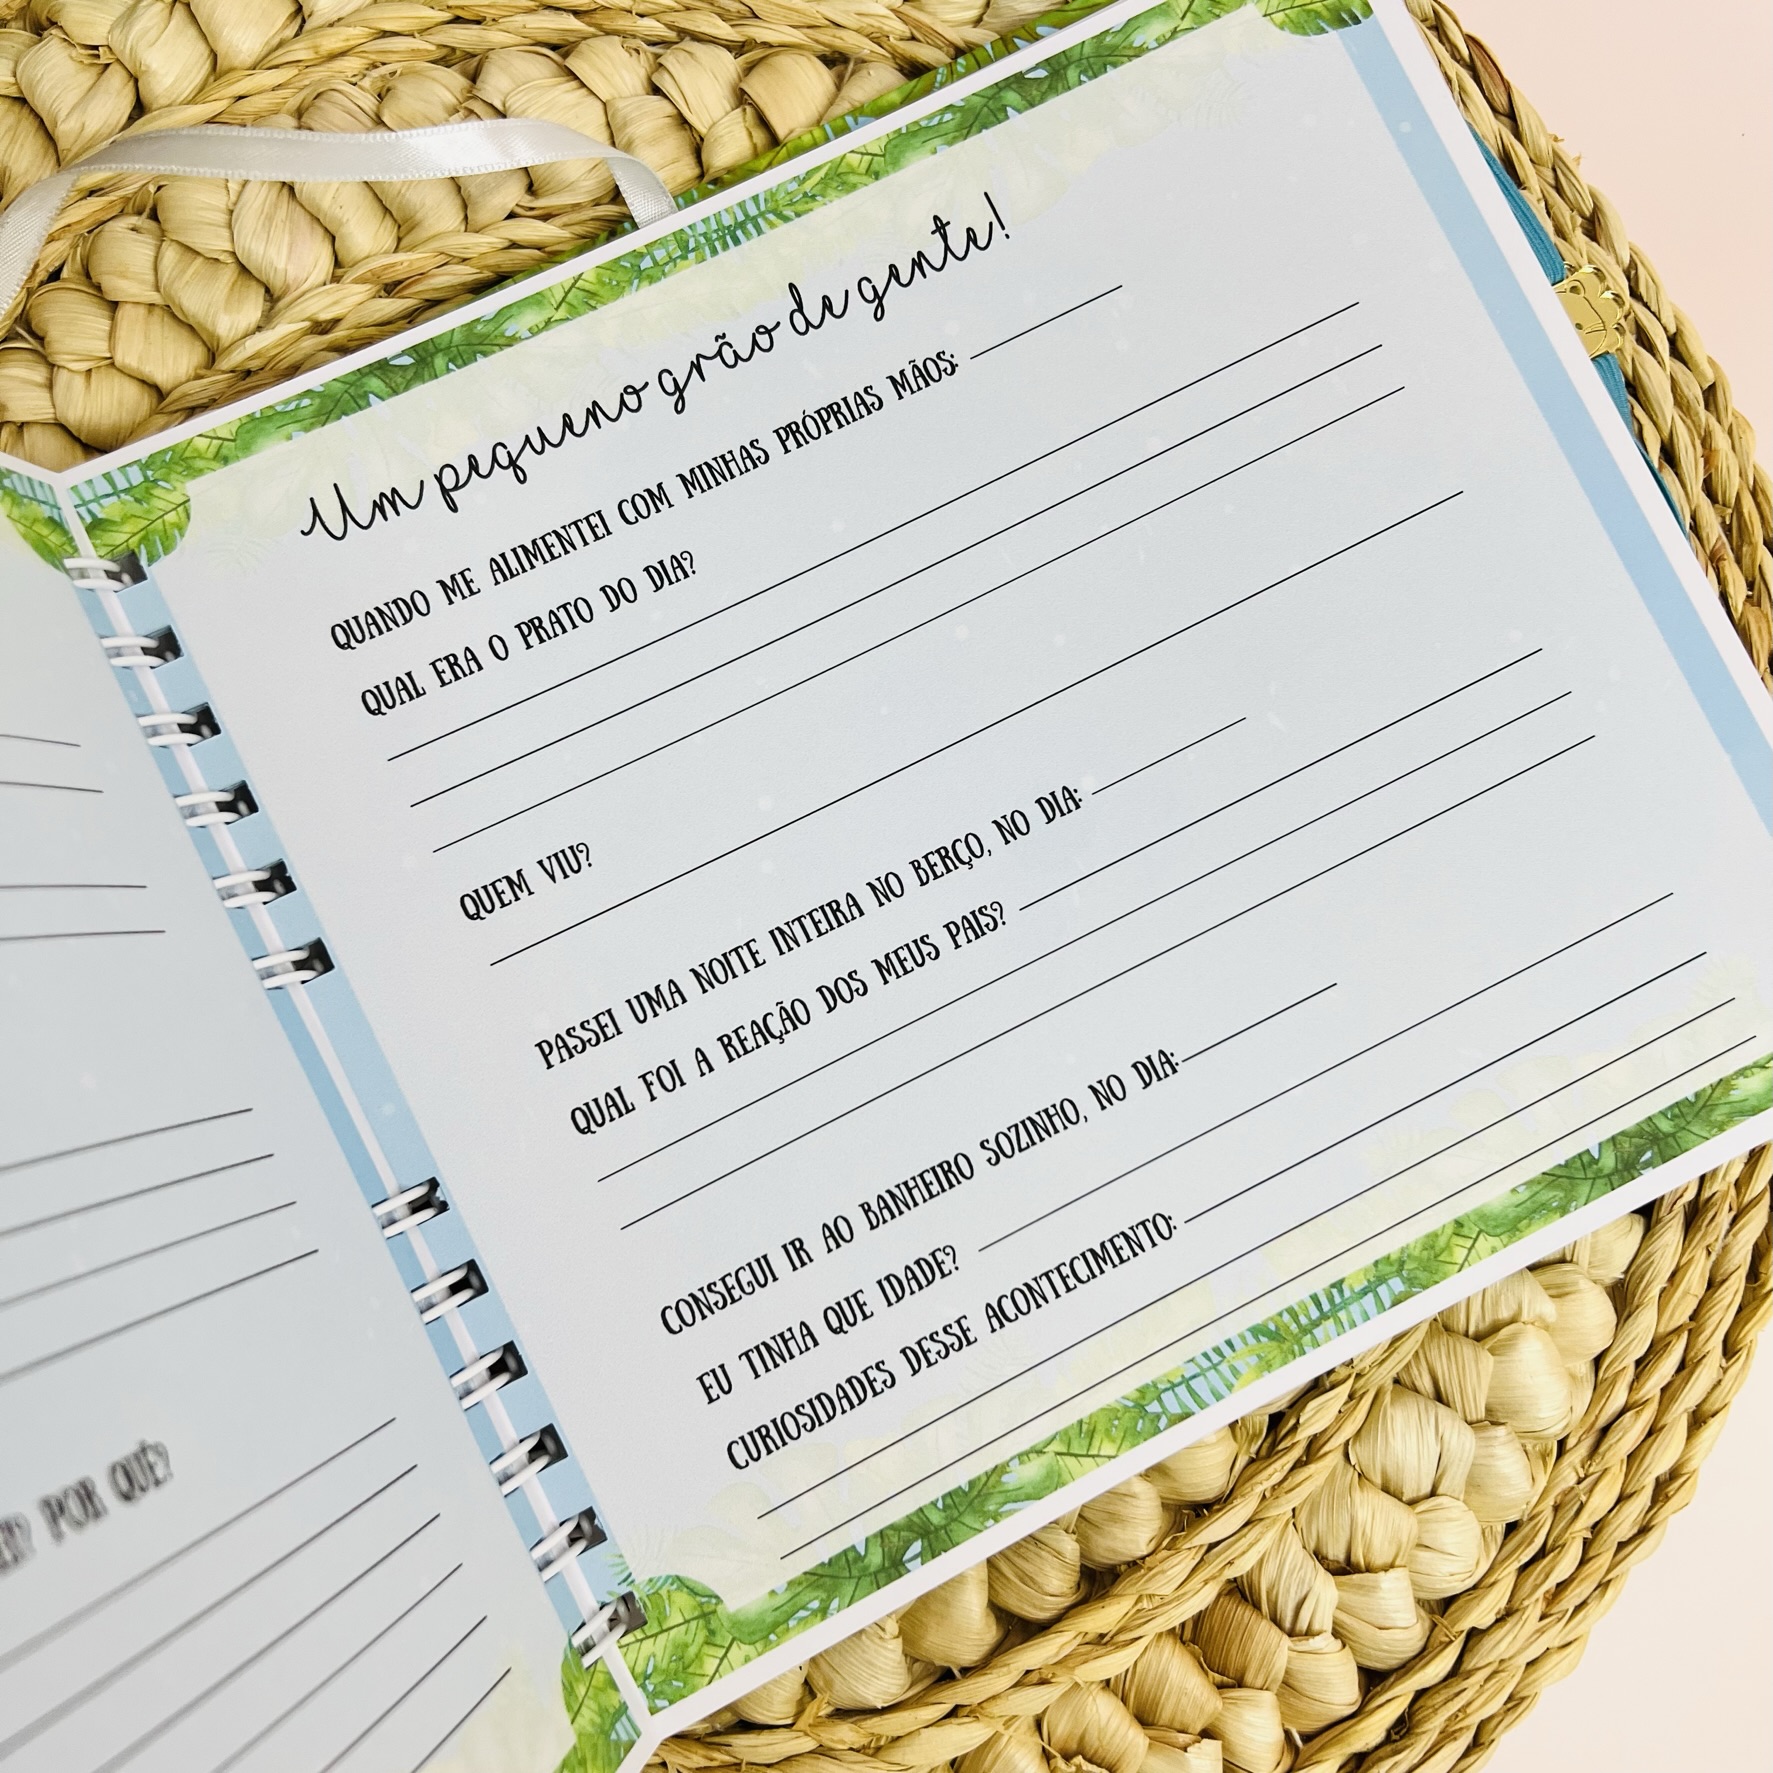 POR QUÊ?
Um pequeno grão de gente!
QUANDO ME ALIMENTEI COM MINHAS PRÓPRIAS MÃOS:
QUAL ERA O PRATO DO DIA?
QUEM VIU?
PASSEI UMA NOITE INTEIRA NO BERÇO, NO DIA:
QUAL FOI A REAÇÃO DOS MEUS PAIS?
CONSEGUI IR AO BANHEIRO SOZINHO, NO DIA:
EU TINHA QUE IDADE?
CURIOSIDADES DESSE ACONTECIMENTO: